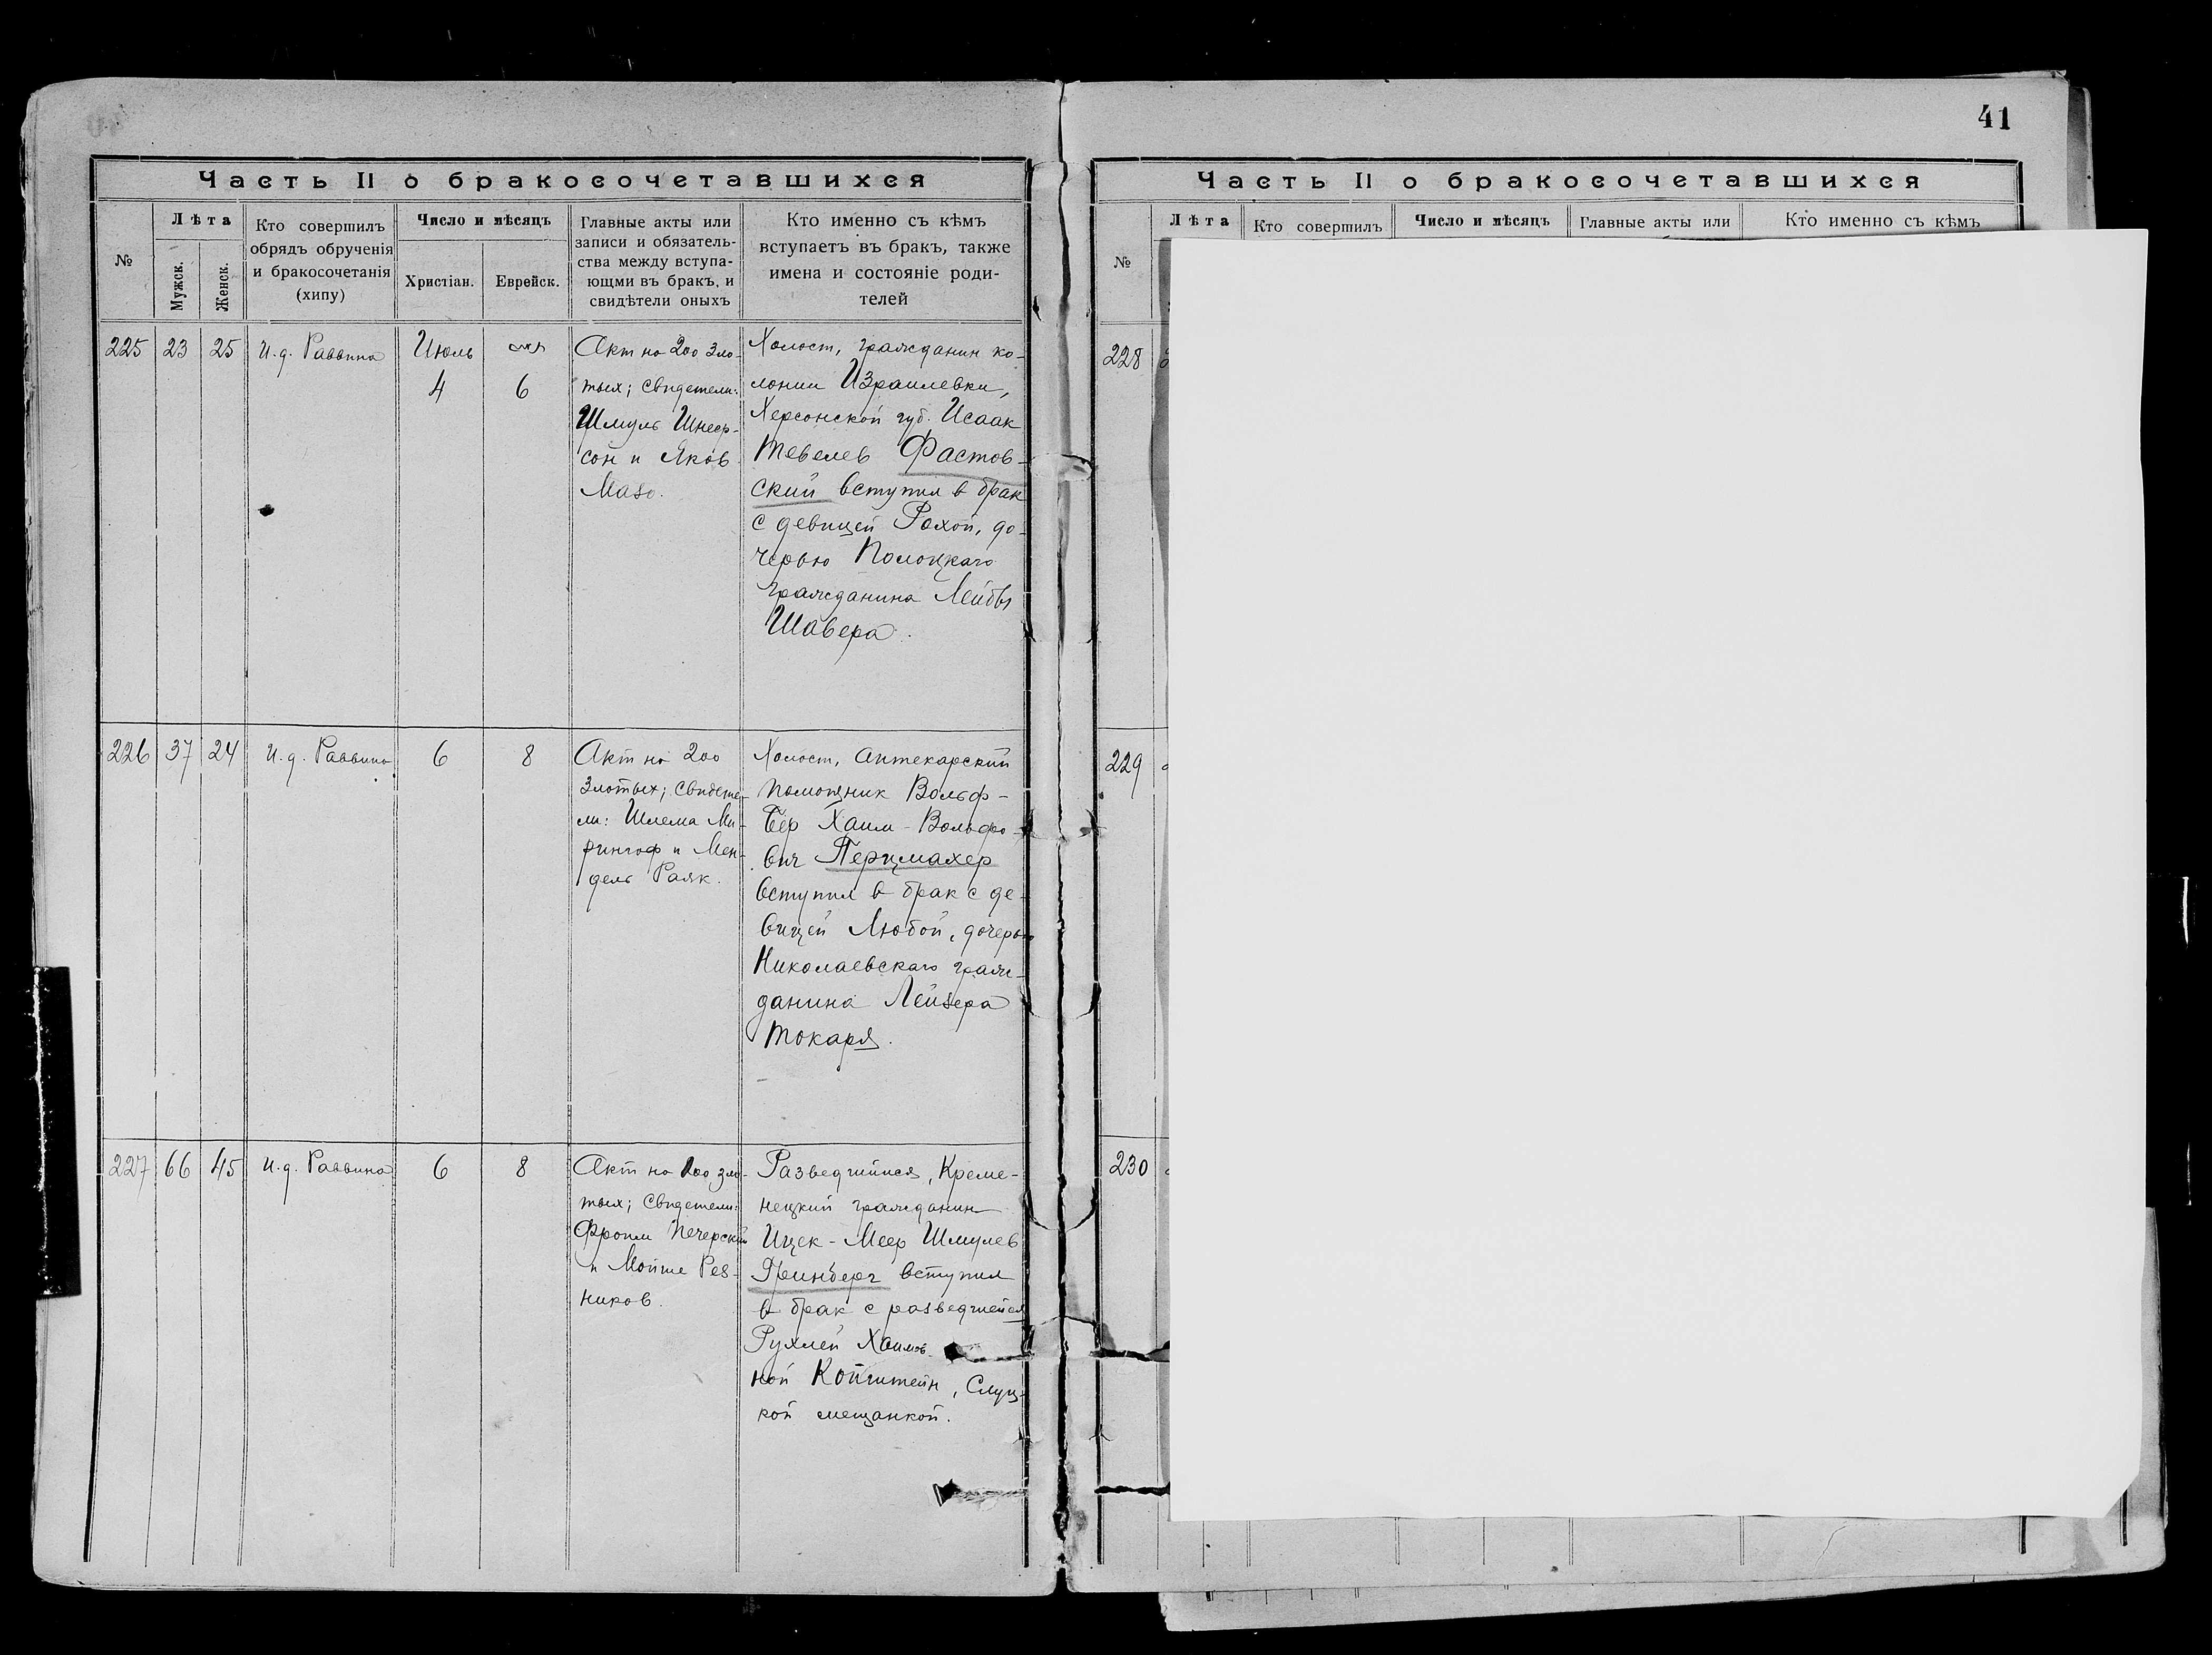 41
Часть II о бракосочетавшихся
№
Лѣта
Мужск.
Женск.
Кто совершилъ
обрядъ обрученія
и бракосочетанія
(хипу)
Число и мѣсяцъ
Христіан.
Еврейск.
Главные акты или
записи и обязатель-
ства между вступа-
ющми въ бракъ, и
свидѣтели оныхъ
Кто именно съ кѣмъ
вступаетъ въ бракъ, также
имена и состояніе роди-
телей
225 23 25 И.д. Раввина
Июль
4 6
Акт на 200 зло-
тых; свидетели:
Шмуль Шнеер-
сон и Яков
Мазо.
Холост, гражданин ко-
лонии Израилевки,
Херсонской губ. Исаак
Тевелев Фастов-
ский вступил в брак
с девицей Рохой, до-
черью Полоцкаго
гражданина Лейбы
Шавера.
226 37 24 И.д. Раввина 6 8
Акт на 200
злотых; свидете-
ли: Шлема Ми-
рингоф и Мен-
дель Раяк.
Холост, аптекарский
помощник Вольф-
Бер Хаим-Вольфо-
вич Перцмахер
вступил в брак с де-
вицей Любой, дочерью
Николаевскаго граж-
данина Лейзера
Токаря.
227 66 45 И.д. Раввина 6 8
Акт на 200 зло-
тых; свидетели:
Фроим Печерский
и Мойше Рез-
ников.
Разведшийся, Креме-
нецкий гражданин
Ицек-Меер Шмулев
Гринберг вступил
в брак с разведшейся
Рухлей Хаимов-
ной Койгитейн, Слуц-
кой мещанкой.
Часть II о бракосочетавшихся
№
Лѣта
Кто совершилъ
Число и мѣсяцъ
Главные акты или
Кто именно съ кѣмъ
228
229
230